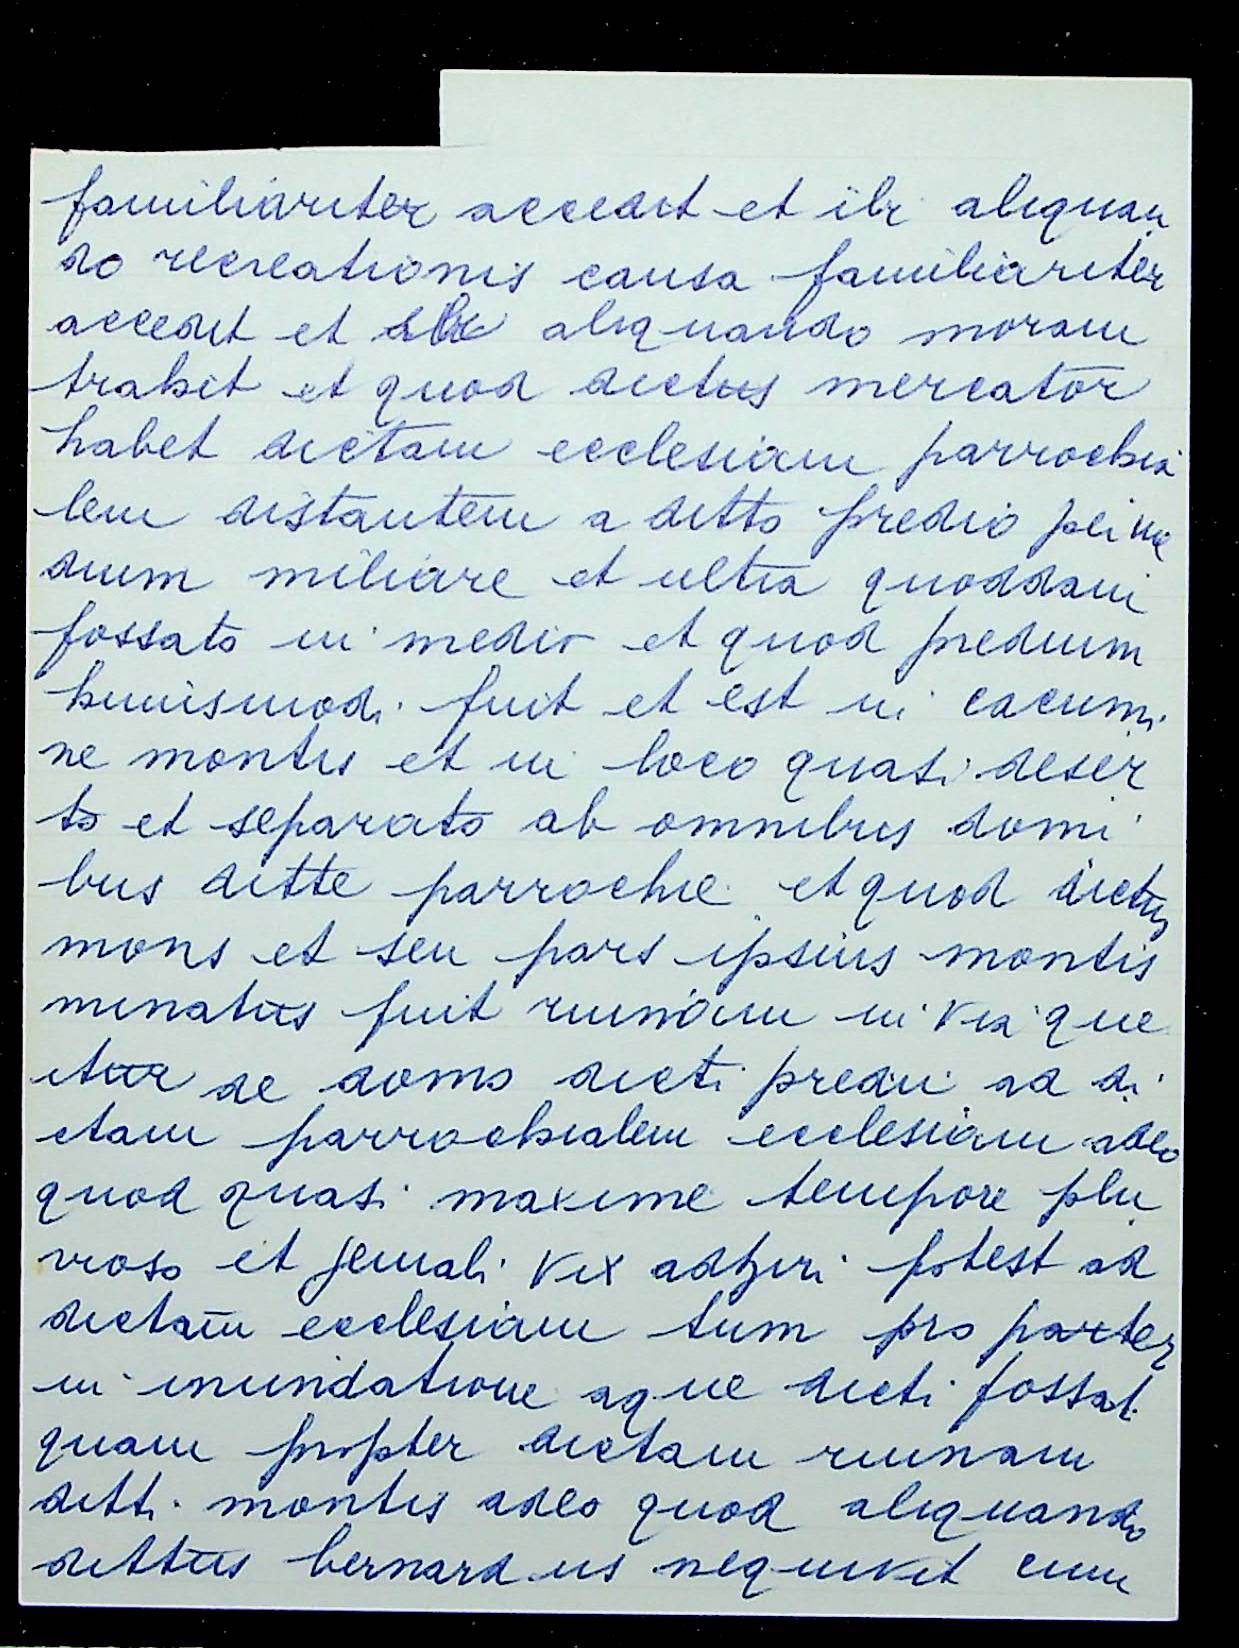 familiariter accedit et ibi aliquan
do recreationis causa familiariter
accedit et ibi aliquando moram
trahit et quod dictus mercator
habet dictam ecclesiam parrochia
lem distantem a ditto predio per
dium miliare et ultra quoddam
fossato in medio et quod predium
huiusmodi fuit et est in cacumi
ne montis et in loco quasi deser
to et separato ab omnibus domi
bus ditte parrochie et quod dictus
mons et seu pars ipsius montis
minatus fuit ruinam in via que
itur de domo dicti predii ad di
ctam parrochialem ecclesiam adeo
quod quasi maxime tempore plu
vioso et jemali vix adhiri potest ad
dictam ecclesiam tum pro parter
in inundatione aque dicti fossati
quam propter dictam ruinam
ditti montis adeo quod aliquando
dittus bernardus nequivit cum